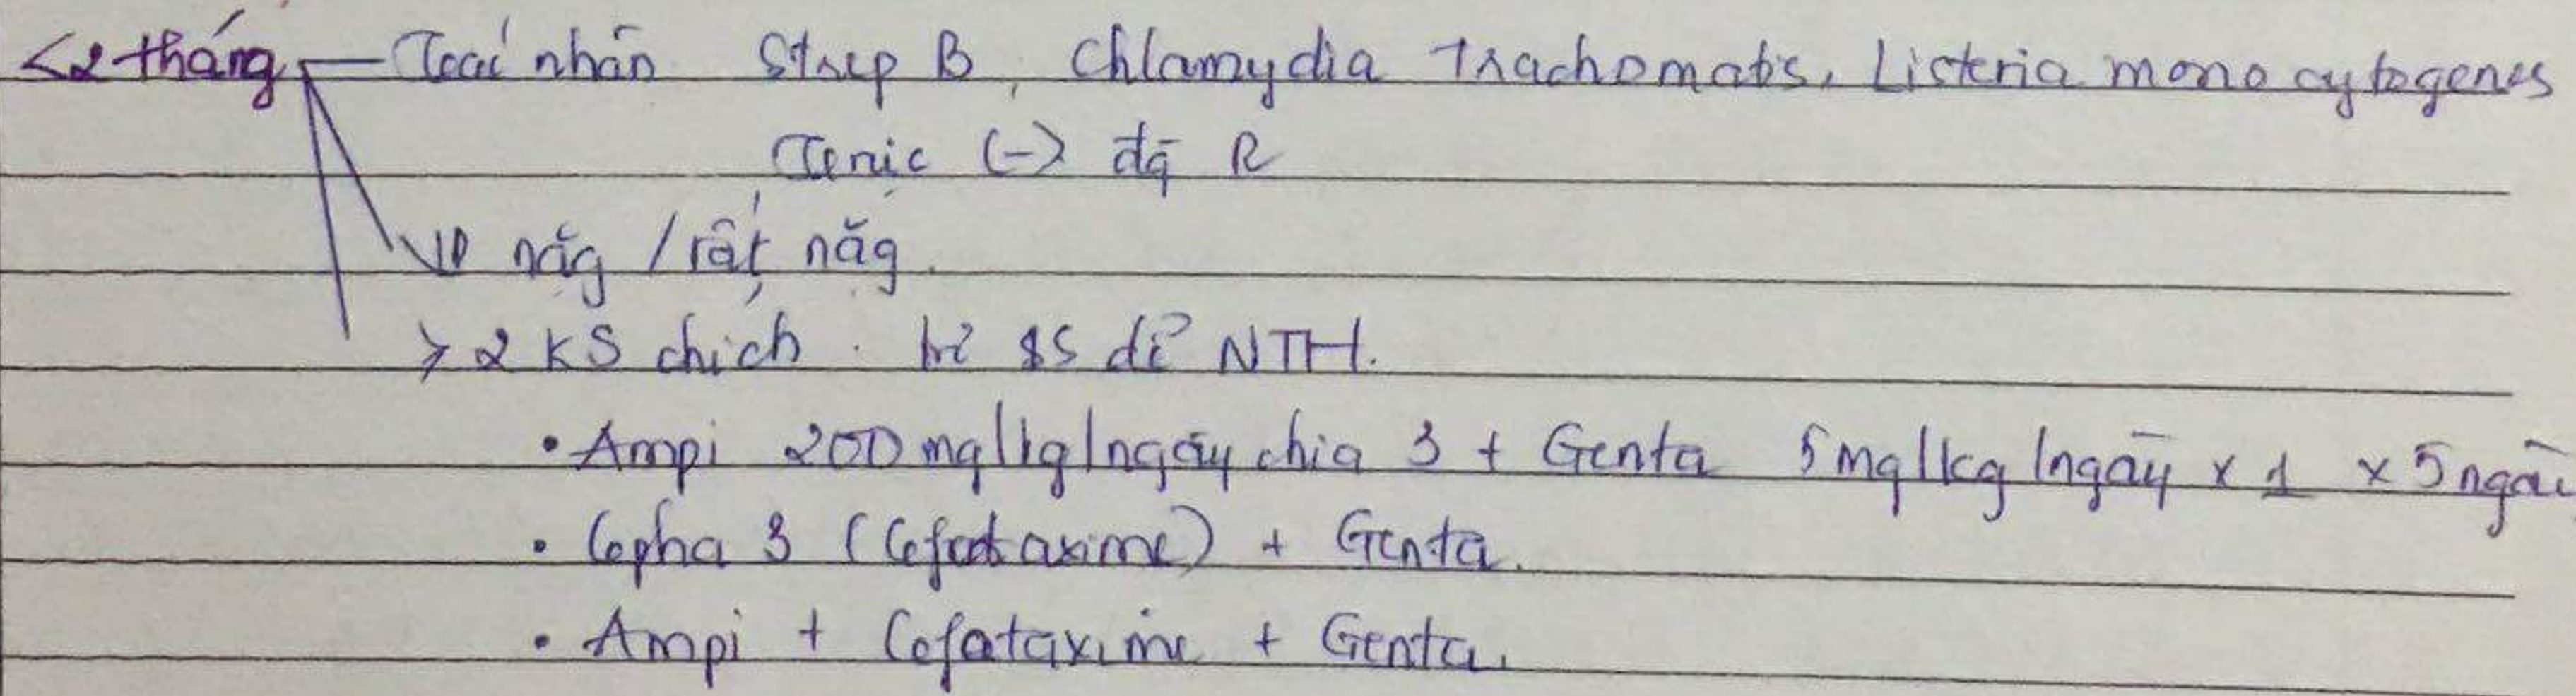 <2 tháng — Tác nhân Strep B, Chlamydia Trachomatis, Listeria monocytogenes
(-) đg R
VP nặg / rất nặg.
> 2 KS chích . trẻ SS dễ NTH.
• Ampi 200 mg/kg/ngày chia 3 + Genta 5mg/kg/ngày x 1 x 5 ngày
• Cepha 3 (Cefotaxime) + Genta.
• Ampi + Cefotaxime + Genta.